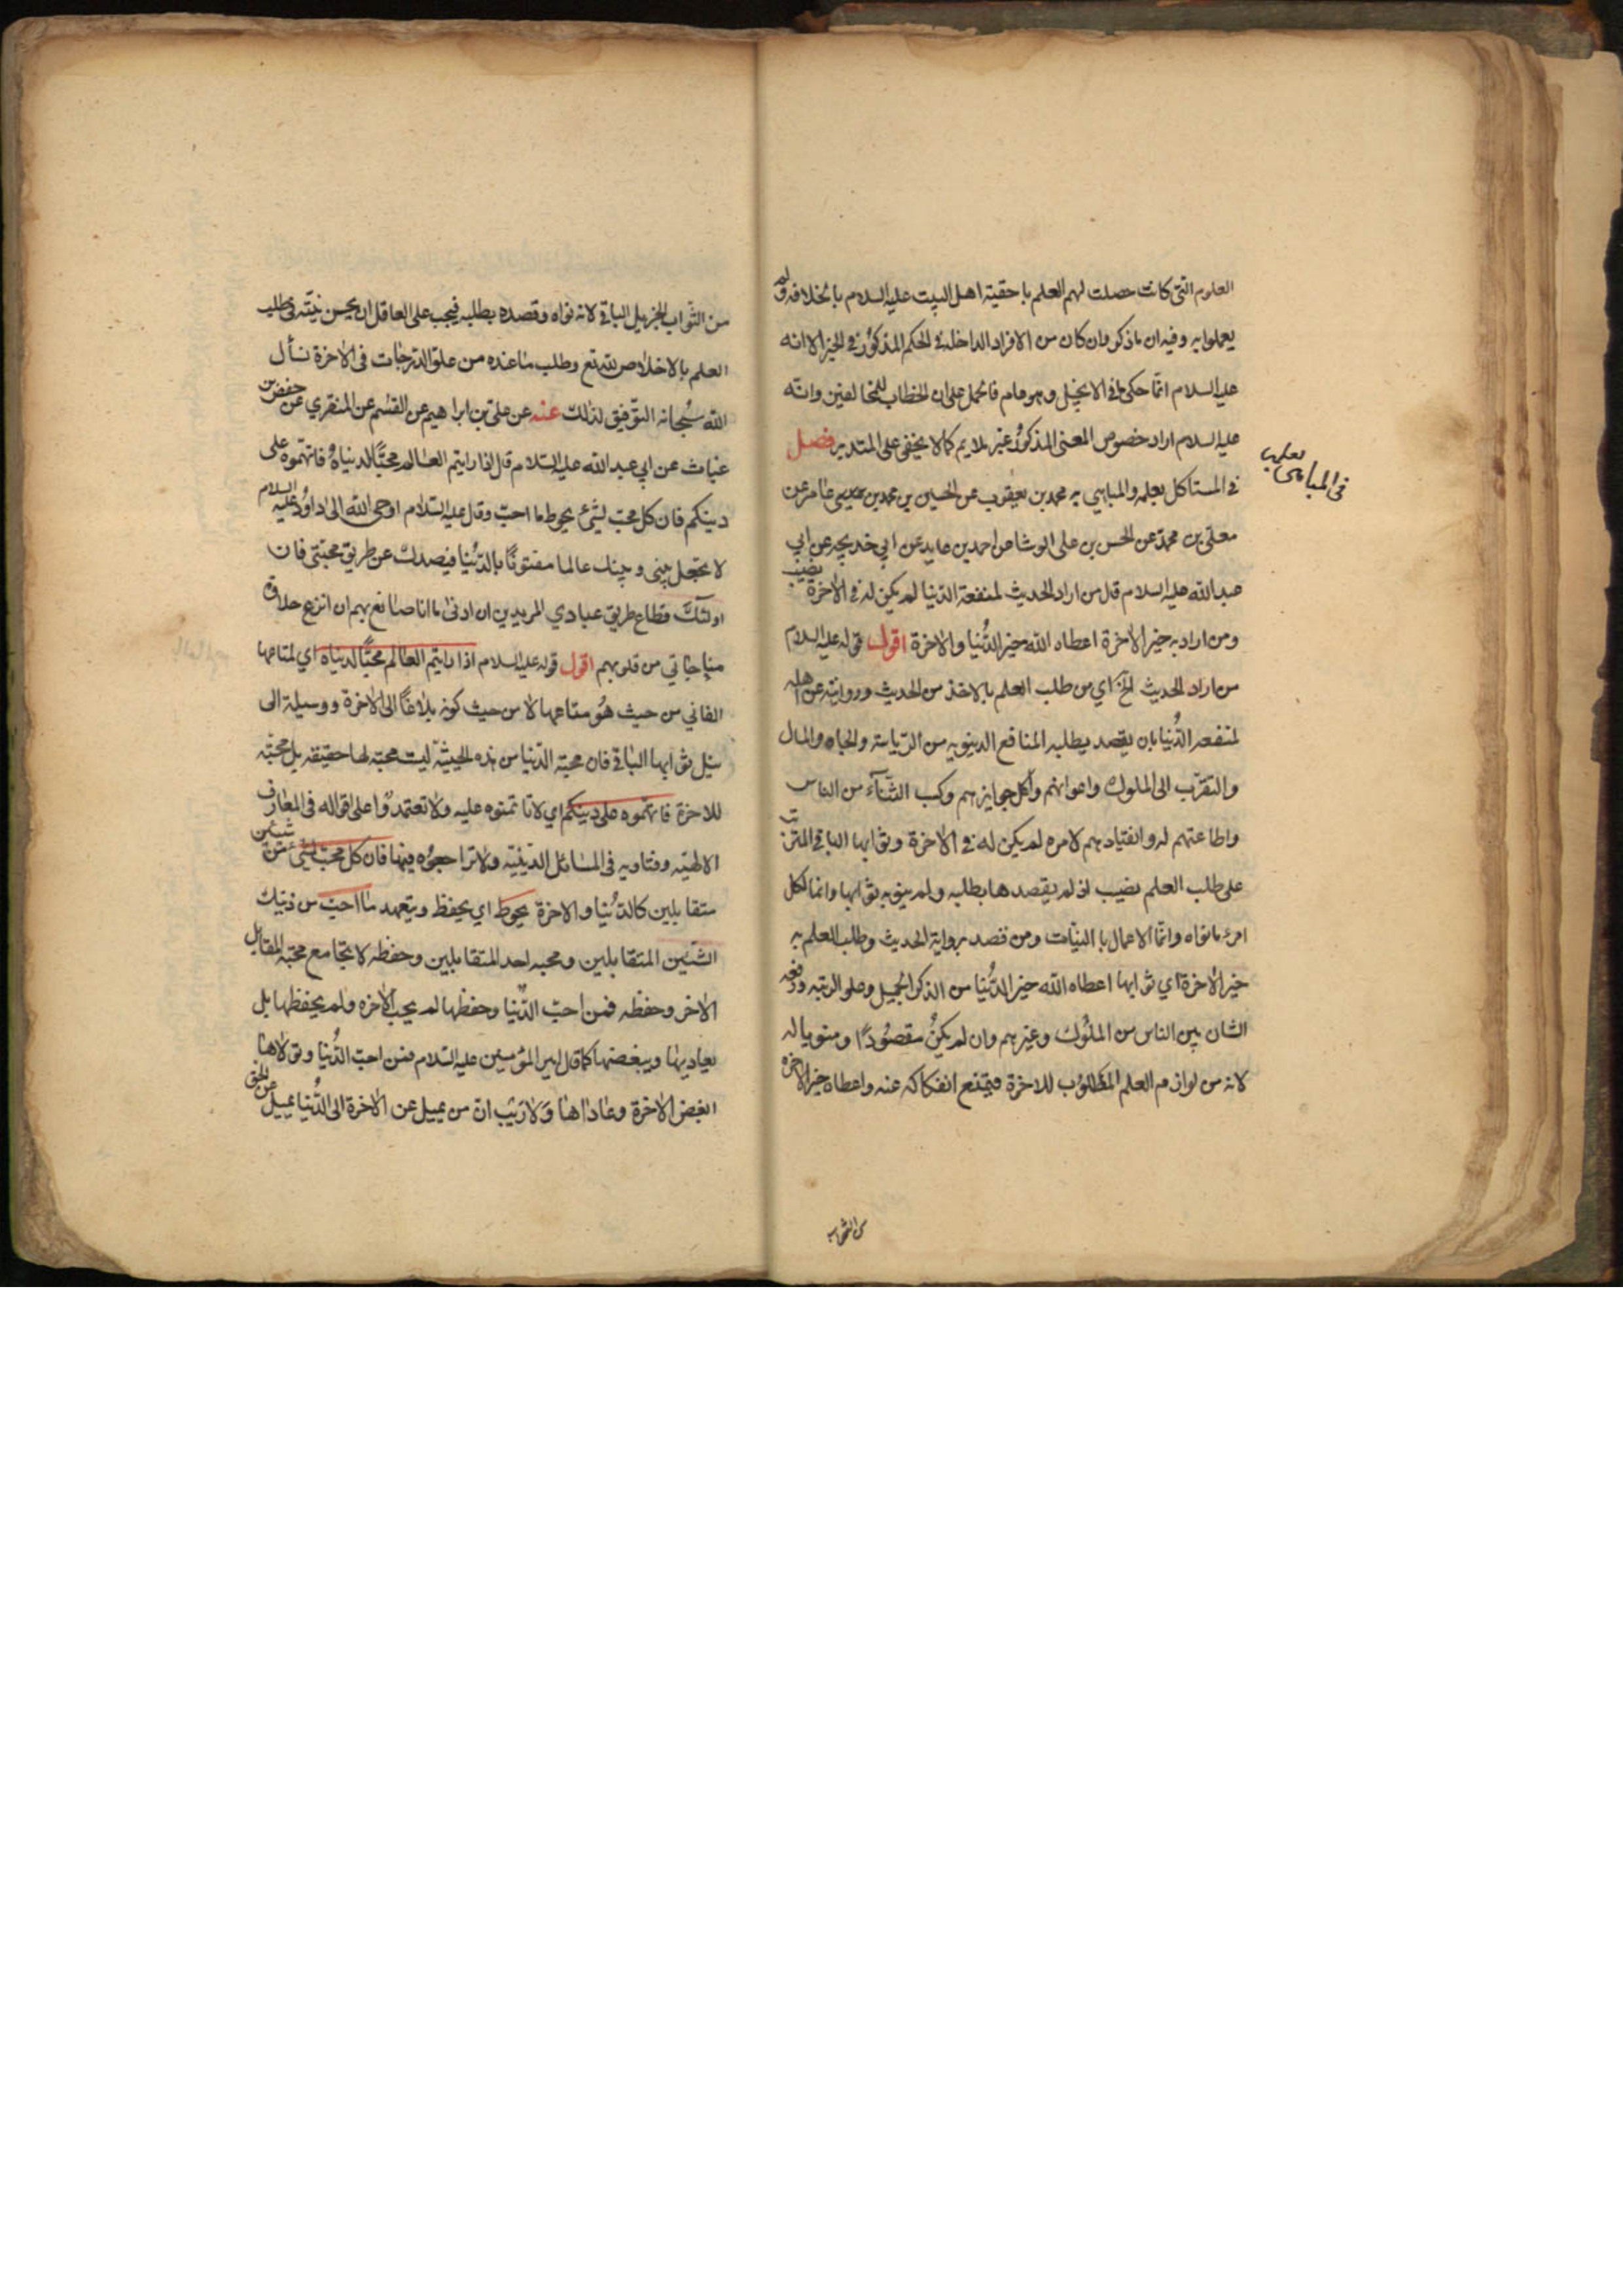 العلوم التى كانت حصلت لهم العلم باحقية اهل البيت عليه السلام بالخلافة ولم
يعملوا به وفيه ان ما ذكر وان كان من الافراد الداخلة فى الحكم المذكور فى الخبر الا انه
عليه السلام انما حكى ما فى الانجيل وهو عام فالحمل على ان الخطاب للمخالفين وانه
عليه السلام اراد خصوص المعنى المذكور غير ملايم كما لا يخفى على المتدبر فصل
فى المباهى بعلمه
فى المستاكل بعلمه والمباهى به محمد بن يعقوب عن الحسين بن محمد بن عامر عن
معلى بن محمد عن الحسن بن على الوشا عن احمد بن عايد عن ابي خديجه عن ابي
عبد الله عليه السلام قال من اراد الحديث لمنفعة الدنيا لم يكن له فى الاخرة نصيب
ومن اراد به خير الاخرة اعطاه الله خير الدُّنيا والاخرة اقول قوله عليه السلام
من اراد الحديث الخ اي من طلب العلم بالاخذ من الحديث وروايته عن اهله
لمنفعة الدُّنيا بان يقصد بطلبه المنافع الدنيويه من الرّياسة والجاه والمال
والتقرّب الى الملوك واعوانهم واكل جوايزهم وكسب الثّنآء من الناس
واطاعتهم له وانقيادهم لامره لم يكن له فى الاخرة وثوابها الباقى المترتب
على طلب العلم نصيب اذ لم يقصدها بطلبه ولم ينو به ثوابها وانما لكل
امرء ما نواه وانّما الاعمال بالنيّات ومن قصد برواية الحديث وطلب العلم به
خير الاخرة اي ثوابها اعطاه الله خير الدُّنيا من الذكر الجميل وعلو الرتبه ورفعه
الشان بين الناس من الملُوك وغيرهم وان لم يكنُ مقصُودًا ومنويا له
لانه من لوازم العلم المطلوُب للاخرة فيمتنع انفكاكه عنه واعطاه خير الاخره
من الثواب
من الثّواب الجزيل الباقى لانه نواه وقصده بطلبه فيجب على العاقل ان يحسن نيّته فى طلب
العلم بالاخلاص لله تع وطلب ما عنده من علوّ الدّرجات فى الاخرة نسأل
الله سُبحانه التوّفيق لذلك عنه عن علىّ بن ابراهيم عن القسم عن المنقري عن حفص بن
غياث عن ابي عبد الله عليه السّلام قال اذا رايتم العالم محبّا لدنياهُ فاتهّموه على
دينكم فان كل محبّ لشئ يحوط ما احبّ وقال عليه السّلام اوحى الله الى داوُد عليه السلام
لا تجعل بينى وبينك عالما مفتونًا بالدّنيا فيصدك عن طريق محبّتى فان
اولئك قطاع طريق عبادي المريدين ان ادنى ما انا صانع بهم ان انزع حلاوة
مناجاتي من قلوبهم اقول قوله عليه السلام اذا رايتم العالم محبّا لدنياه اي لمتاعها
الفاني من حيث هُو متاعها لا من حيث كونه بلاغًا الى الاخرة ووسيلة الى
نيل ثوابها الباقى فان محبة الدّنيا من هذه الحيثيّة ليست محبة لها حقيقه بل محبّة
للاخرة فاتهّموه على دينكم اي لا تاتمنوه عليه ولا تعتمدوا على اقواله فى المعارف
الالهيّه وفتاويه فى المسائل الدّينيّه ولا تراجعوُه فيها فان كل محبّ لشئ من شيئين
متقابلين كالدّنيا والاخرة يحوط اي يحفظ ويتعهد ما احبّ من ذينك
الشّيئين المتقابلين ومحبه احد المتقابلين وحفظه لا تجامع محبّة المقابل
الاخر وحفظه فمن احبّ الدّنيا وحفظها لم يحب الاخره ولم يحفظها بل
يعاديها ويبغضها كما قال امير المؤمنين عليه السّلام فمن احبّ الدُّنيا وتولاها
ابغض الاخرة وعاداها وَلا رَيْب انّ من يميل عن الاخرة الى الدُّنيا يميل عن الحق